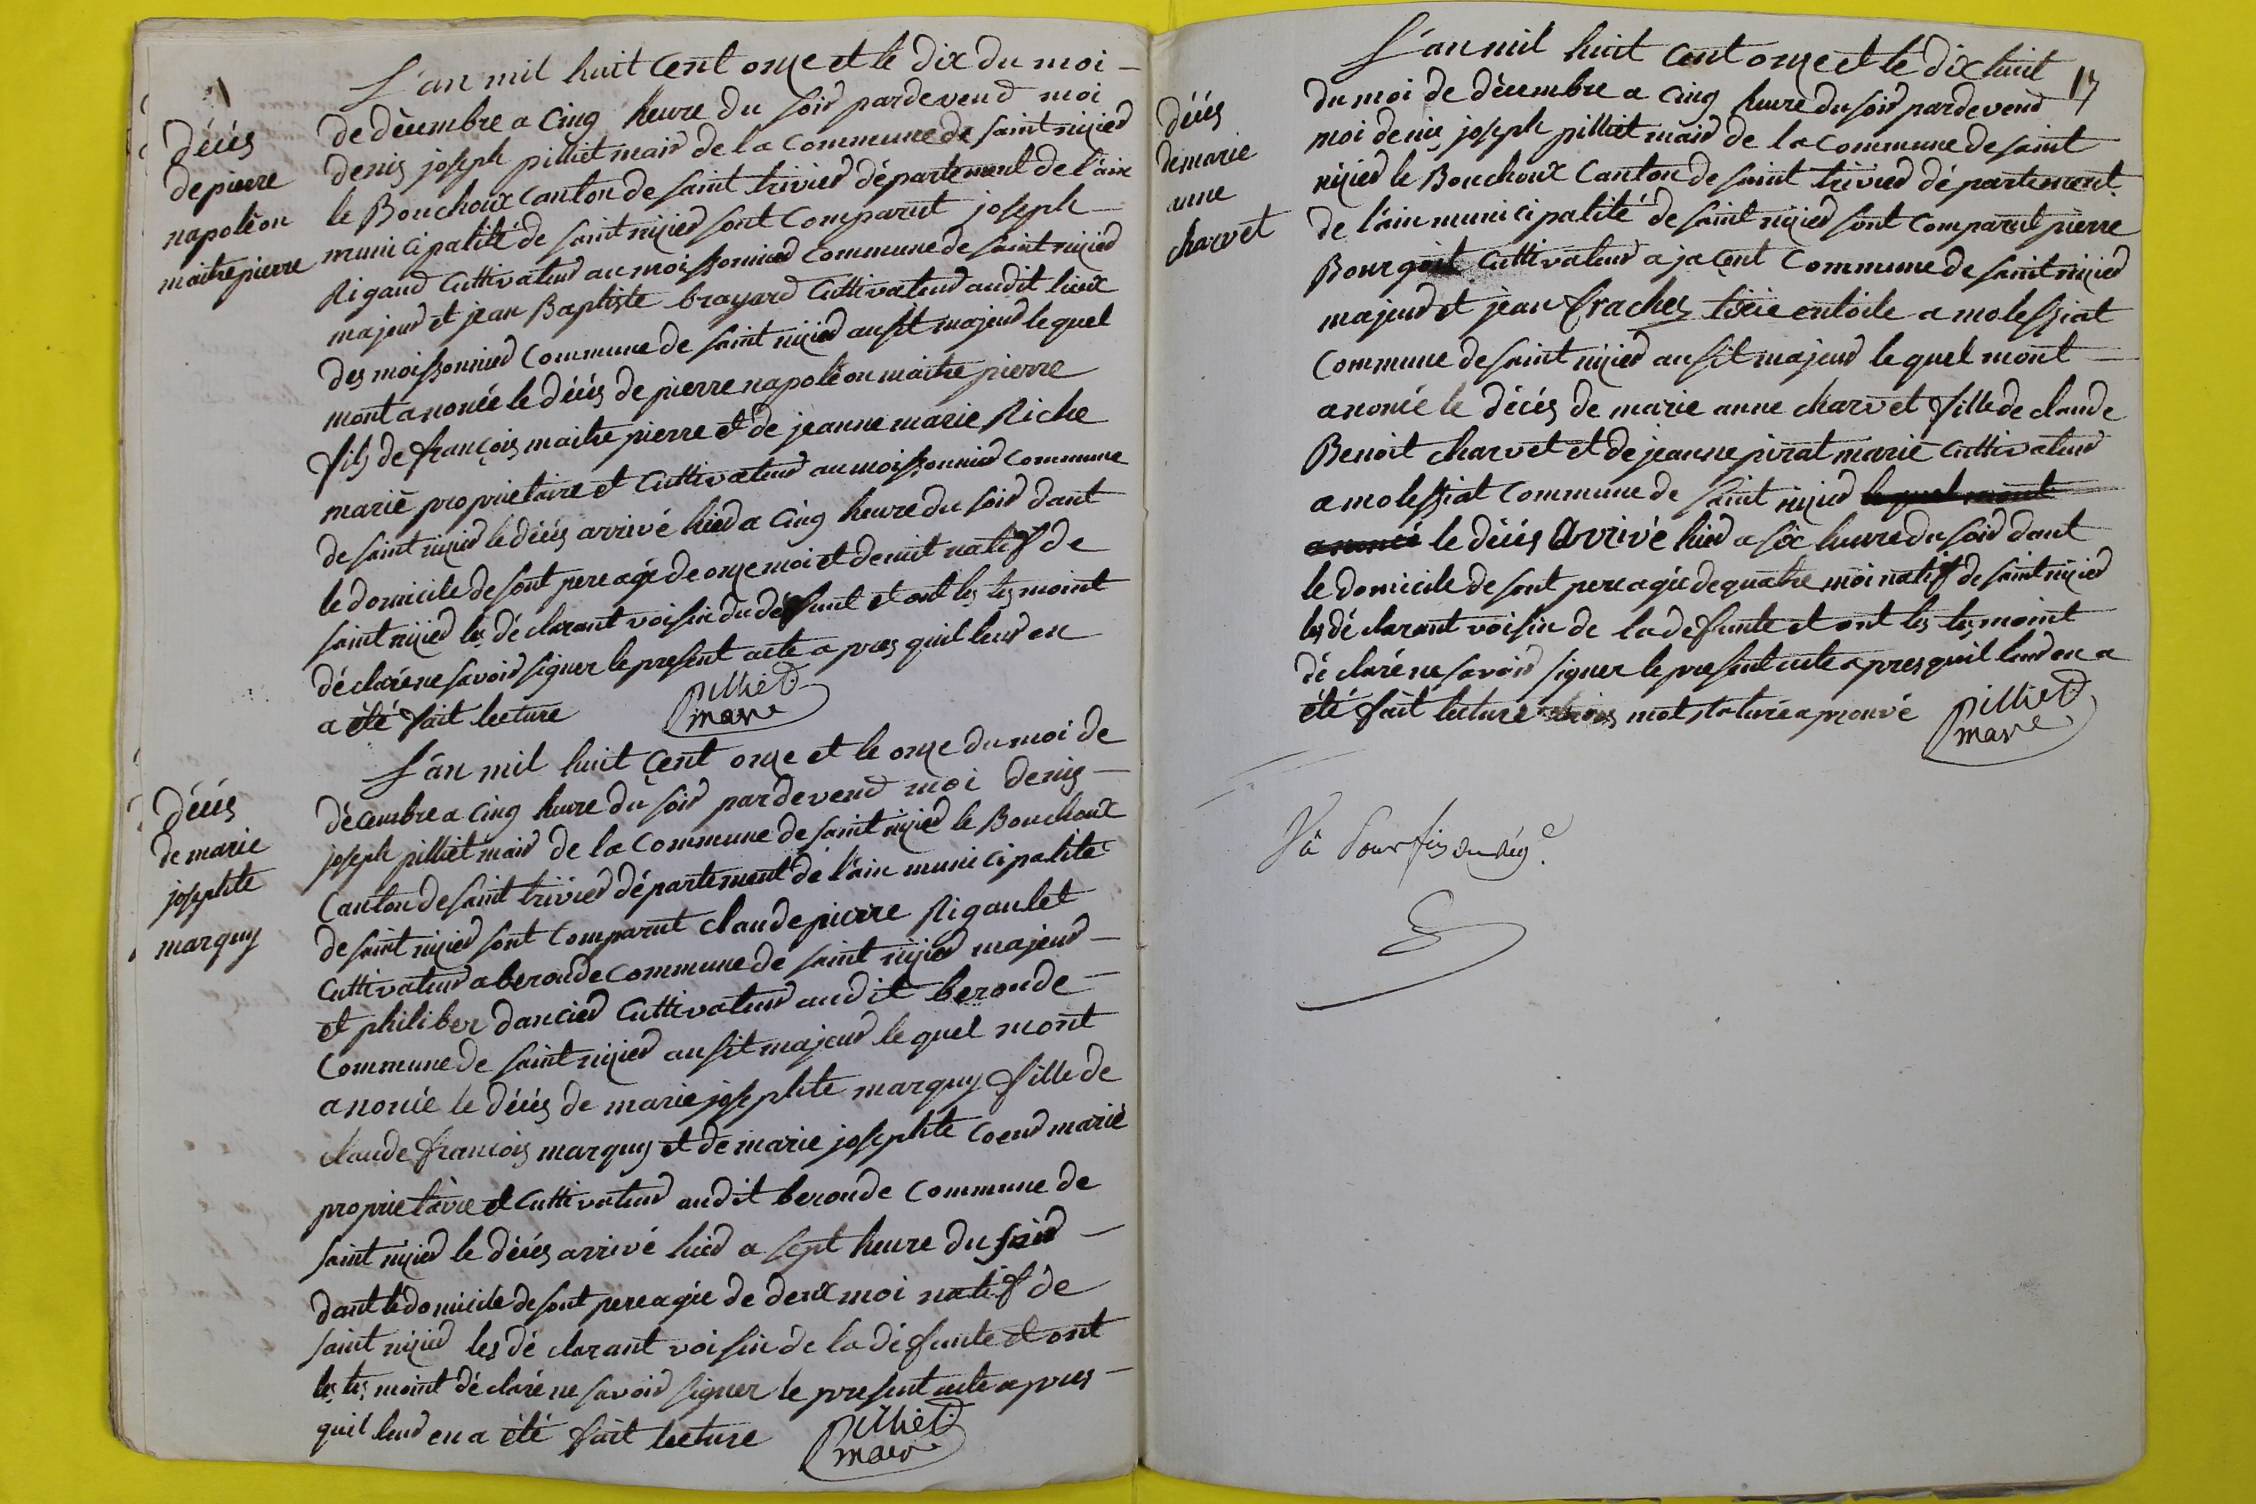 décés
de pierre
napoléon
maitre pierre
L'an mil huit cent onze et le dix du moi
de décembre a cinq heure du soir pardevend moi
denis joseph pilliet mair de la commune de saint nizier
le Bouchoux canton de saint trivier département de l'ain
municipalité de saint nizier sont comparut joseph
Rigaud cuttivateur au moissonnier commune de saint nizier
majeur et jean Baptiste brayard cuttivateur audit lieux
des moissonnier commune de saint nizier ausit majeur le quel
mont anoncé le décés de pierre napoléon maitre pierre
fils de françois maitre pierre et de jeanne marie Riche
marié proprietaire et cuttivateur au moissonnier commune
de saint nizier le décés arrivé hier a cinq heure du soir dant
le domicile de sont pere agée de onze moi et demit natif de
saint nizier les déclarant voisin du défunt et ont les tesmoint
déclaré ne savoir signer le present acte apres quil leur en
a été fait lecture
Pilliet
mare
décés
de marie
josephte
marguy
L'an mil huit cent onze et le onze du moi de
décembre a cinq heure du soir pardevend moi denis
joseph pilliet mair de la commune de saint nizier le Bouchoux
canton de saint trivier département de l'ain municipalité
de saint nizier sont comparut claude pierre Rigaulet
cuttivateur a beroude commune de saint nizier majeur
et philiber dancier cuttivateur audit beroude
commune de saint nizier ausit majeur le quel mont
anoncé le décés de marie josephte marguy fille de
claude françois marguy et de marie josephte coeur marié
proprietaire et cuttivateur audit beroude commune de
saint nizier le décés arrivé hier a sept heure du soir
dant le domicile de sont pere agée de deux moi natif de
saint nizier les déclarant voisin de la défunte et ont
les tesmoint déclaré ne savoir signer le present acte apres
quil leur en a été fait lecture
Pilliet
mair
17
décés
de marie
anne
charvet
L'an mil huit cent onze et le dix huit
du moi de décembre a cinq heure du soir pardevend
moi denis joseph pilliet mair de la commune de saint
nizier le Bouchoux canton de saint trivier département
de l'ain municipalité de saint nizier sont comparut pierre
Bourgoit cuttivateur a jacent commune de saint nizier
majeur et jean fraches tixie entoile a molessiat
commune de saint nizier ausit majeur le quel mont
anoncé le décés de marie anne charvet fille de claude
Benoit charvet et de jeanne pirat marié cuttivateur
a molessiat commune de saint nizier le quel mont
anoncé le décés arrivé hier a six heure du soir dant
le domicile de sont pere agée de quatre moi natif de saint nizier
les déclarant voisin de la defunte et ont les tesmoint
déclaré ne savoir signer le present acte apres quil leur en a
été fait lecture mot raturé aprouvé
Pilliet
mare
Vû Pour fin du rég.e